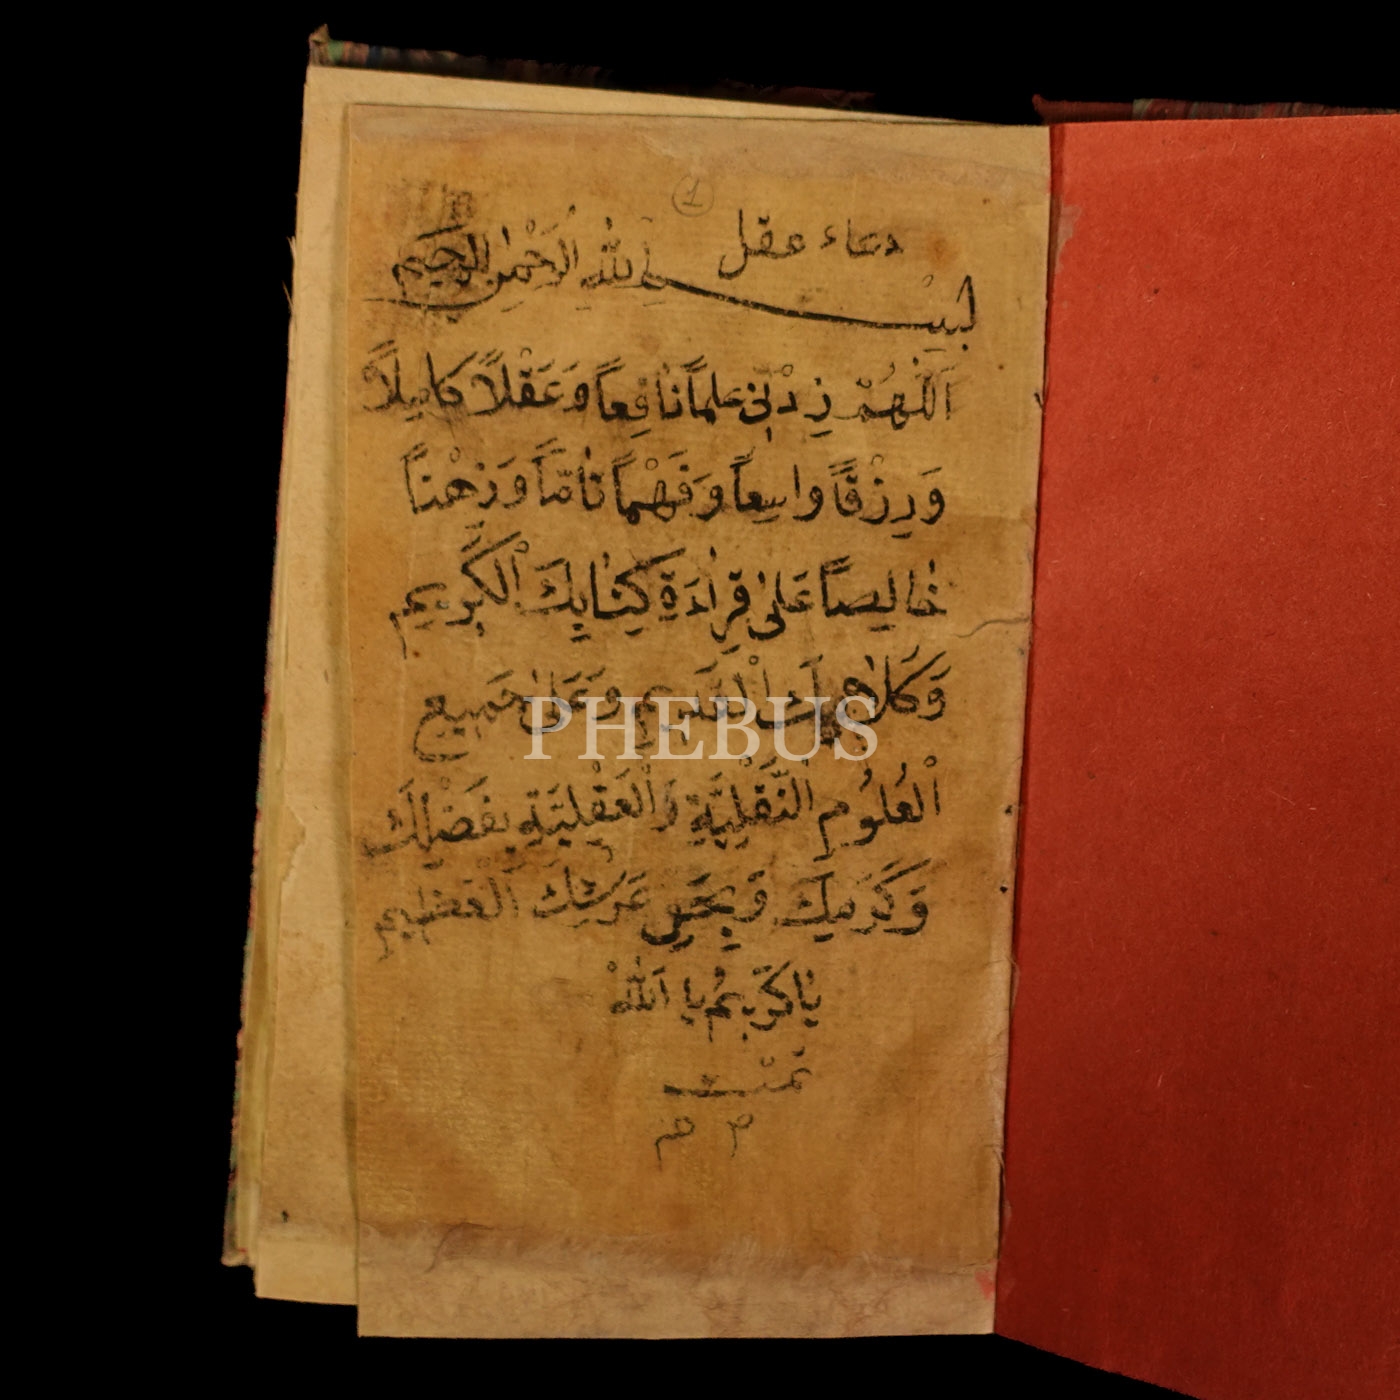 1
دعاء عقل
بسم الله الرحمن الرحيم
اَللّٰهُمَّ زِدْنِى عِلماً نٰافِعاً وَعَقْلاً كَامِلاً
وَرِزْقاً واسِعاً وَفَهْماً تٰامّاً وَزِهْناً
خٰالِصاً عَلىٰ قِرٰاءَةِ كِتٰابِكَ الْكَرِيمِ
وَكَلاٰمِكَ الْقَدِيمِ وَعَلىٰ جَمِيعِ
الْعُلُومِ النَّقْلِيَّةِ وَالْعَقْلِيَّةِ بِفَضْلِكَ
وَكَرَمِكَ وَبِحَقِ عَرْشِكَ الْعَظِيمِ
يٰا كَرِيمُ يا اَللّٰهْ
تمت
م م
PHEBUS